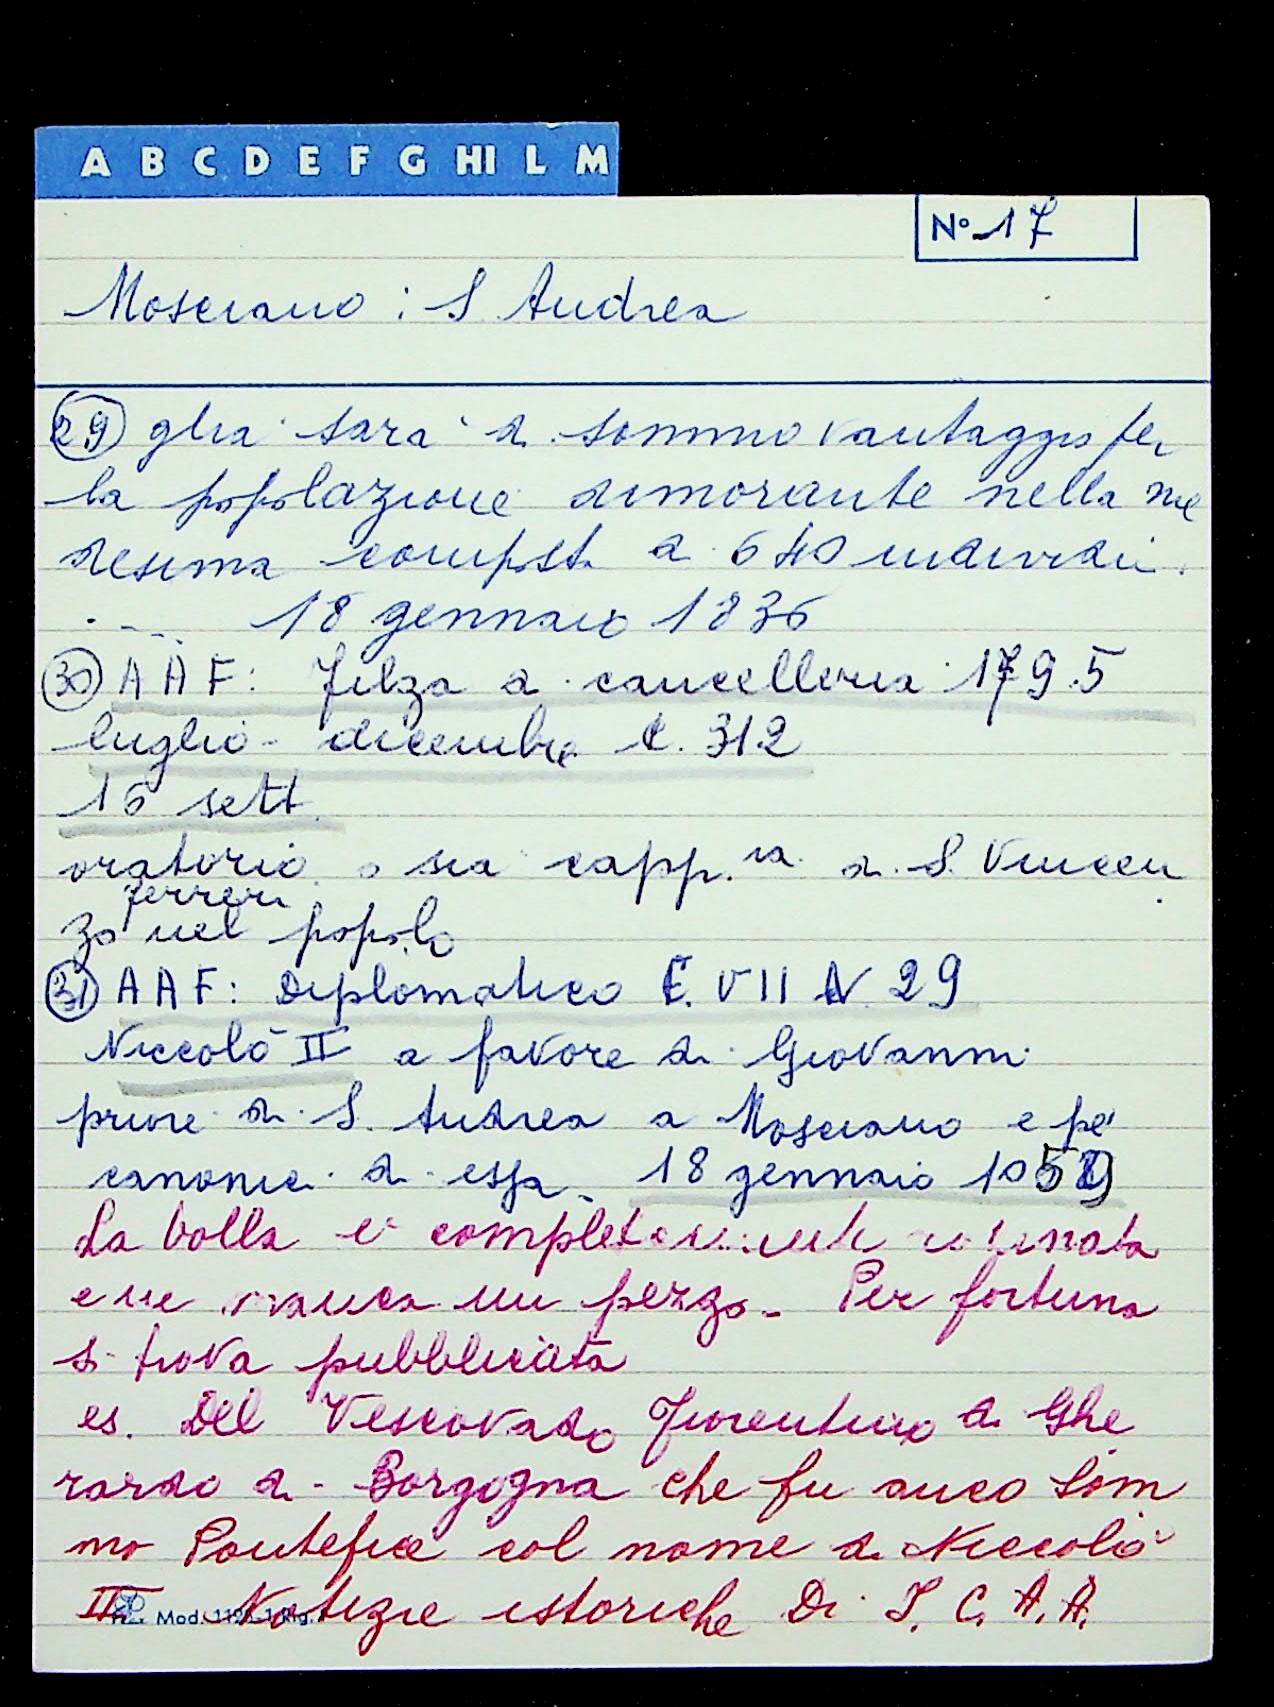 A B C D E F G HI L M
N° 17
Mosciano : S Andrea
29 glia sarà di sommo vantaggio per
la popolazione dimorante nella me
desima compsta di 640 individui.
. - - .. 18 gennaio 1836
30 A A F: Filza di cancelleria 1795
luglio - dicembre C. 312
16 sett.
oratorio o sia capp.na di S. Vincen
Ferreri
zo nel popolo
31 A A F: Diplomatico C. VII N 29
Niccolò II a favore di Giovanni
priore di S. Andrea a Mosciano e pe'
canonici di essa - 18 gennaio 1059
La bolla è completamente rovinata
e ne manca un pezzo - Per fortuna
si trova pubblicata
es. Del Vescovado Fiorentino di Ghe
rardo di Borgogna che fu anco Som
mo Pontefice col nome di Niccolò
II Notizie istoriche Di I. C. A. A.
Mod. 1125-1 Rig.